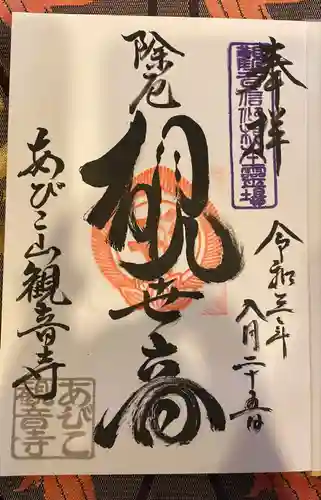 奉拝
観音信仰総本霊場
令和三年
八月二十五日
除厄
観世音
あびこ山観音寺
あびこ
観音寺